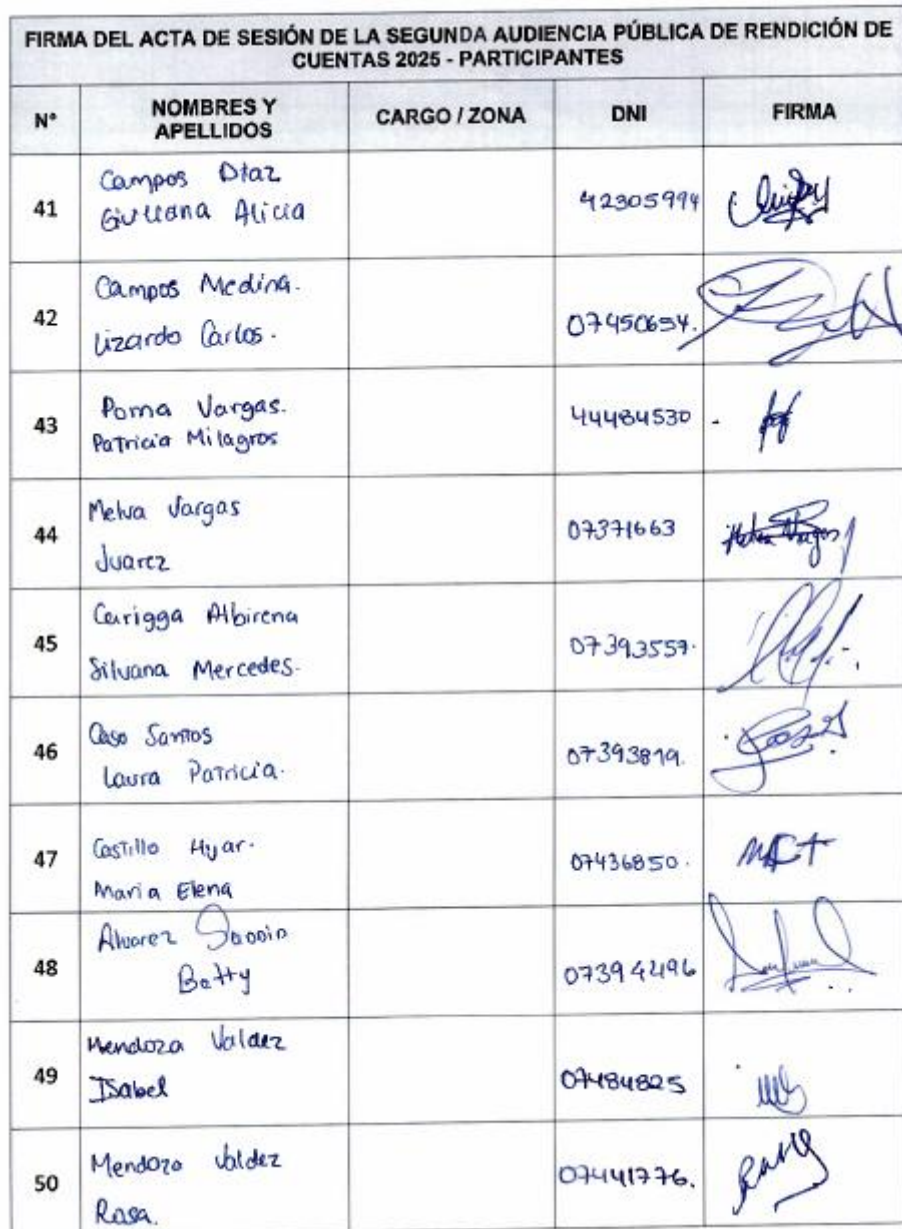 FIRMA DEL ACTA DE SESIÓN DE LA SEGUNDA AUDIENCIA PÚBLICA DE RENDICIÓN DE
CUENTAS 2025 - PARTICIPANTES
N° NOMBRES Y APELLIDOS CARGO / ZONA DNI FIRMA
41 Campos Díaz
Giuliana Alicia 42305994
42 Campos Medina.
Lizardo Carlos. 07450654.
43 Poma Vargas.
Patricia Milagros 44484530
44 Melva Vargas
Juarez 07371663
45 Albirena
Silvana Mercedes. 07393557.
46 Caso Santos
Laura Patricia. 07393819.
47 Castillo
Maria Elena 07436850.
48 Alvarez
Betty 07394496
49 Mendoza Valdez
Isabel 07484825
50 Mendoza Valdez
Rosa. 07441776.